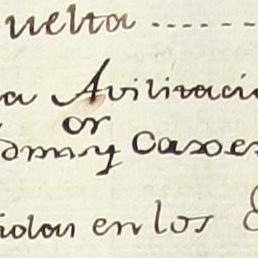 uelta ........
a Avilitacio
or
dmr y Caxe
iolon en los